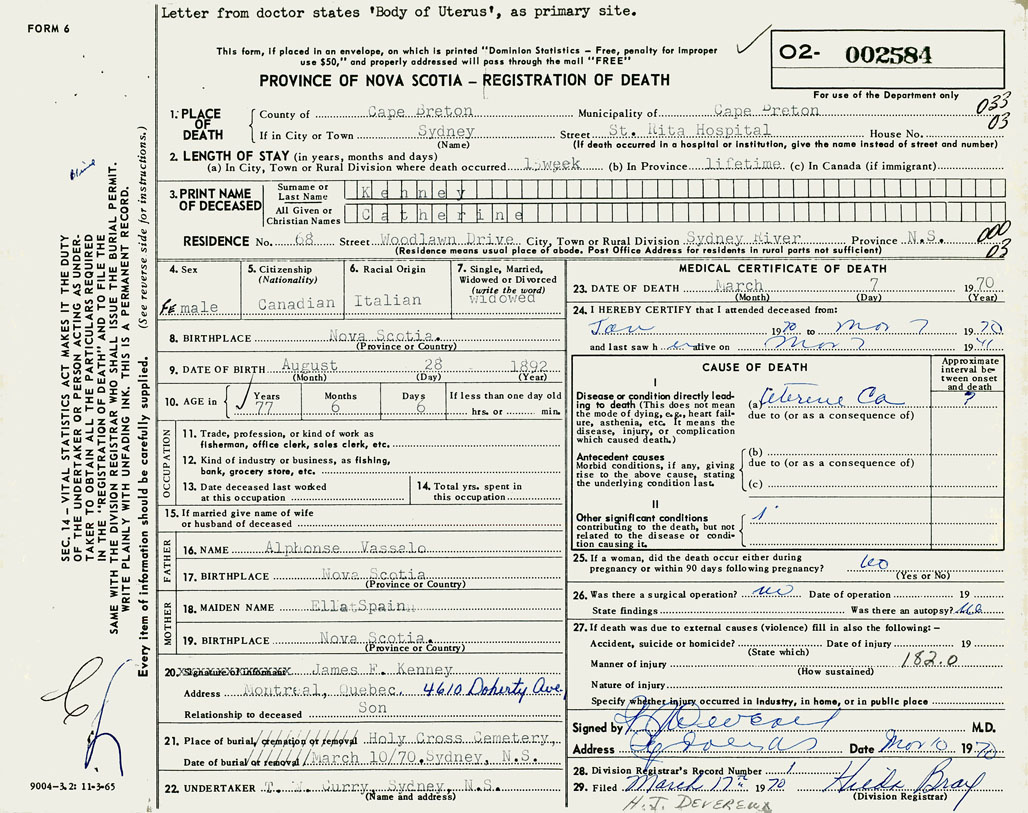 Letter from doctor states 'Body of Uterus', as primary site.
FORM 6
This form, if placed in an envelope, on which is printed "Dominion Statistics – Free, penalty for improper
use $50," and properly addressed will pass through the mail "FREE"
O2- 002584
PROVINCE OF NOVA SCOTIA – REGISTRATION OF DEATH
For use of the Department only
033
03
1. PLACE OF DEATH
County of Cape Breton Municipality of Cape Breton
If in City or Town Sydney Street St. Rita Hospital House No.
(Name) (If death occurred in a hospital or institution, give the name instead of street and number)
2. LENGTH OF STAY (in years, months and days)
(a) In City, Town or Rural Division where death occurred 1 week (b) In Province lifetime (c) In Canada (if immigrant)
3. PRINT NAME OF DECEASED
Surname or Last Name Kenney
All Given or Christian Names Catherine
RESIDENCE No. 68 Street Woodlawn Drive City, Town or Rural Division Sydney River Province N.S.
(Residence means usual place of abode. Post Office Address for residents in rural parts not sufficient)
000
03
4. Sex Female
5. Citizenship (Nationality) Canadian
6. Racial Origin Italian
7. Single, Married, Widowed or Divorced (write the word) widowed
8. BIRTHPLACE Nova Scotia
(Province or Country)
9. DATE OF BIRTH August 28 1892
(Month) (Day) (Year)
10. AGE in Years 77 Months 6 Days 6 If less than one day old hrs. or min.
OCCUPATION
11. Trade, profession, or kind of work as fisherman, office clerk, sales clerk, etc.
12. Kind of industry or business, as fishing, bank, grocery store, etc.
13. Date deceased last worked at this occupation
14. Total yrs. spent in this occupation
15. If married give name of wife or husband of deceased
FATHER
16. NAME Alphonse Vassalo
17. BIRTHPLACE Nova Scotia
(Province or Country)
MOTHER
18. MAIDEN NAME Ella Spain
19. BIRTHPLACE Nova Scotia.
(Province or Country)
20. Signature of Informant James F. Kenney
Address Montreal, Quebec. 4610 Doherty Ave,
Relationship to deceased Son
21. Place of burial, cremation or removal Holy Cross Cemetery,
Date of burial or removal March 10/70. Sydney, N.S.
22. UNDERTAKER T. W. Curry, Sydney, N.S.
(Name and address)
MEDICAL CERTIFICATE OF DEATH
23. DATE OF DEATH March 7 1970
(Month) (Day) (Year)
24. I HEREBY CERTIFY that I attended deceased from:
Jan 1970 to Mar 7 1970
and last saw her alive on Mar 7 19
CAUSE OF DEATH
Approximate interval between onset and death
I
Disease or condition directly leading to death (This does not mean the mode of dying, e.g., heart failure, asthenia, etc. It means the disease, injury, or complication which caused death.)
(a) Uterine Ca ?
due to (or as a consequence of)
Antecedent causes
Morbid conditions, if any, giving rise to the above cause, stating the underlying condition last.
(b)
due to (or as a consequence of)
(c)
II
Other significant conditions contributing to the death, but not related to the disease or condition causing it.
25. If a woman, did the death occur either during pregnancy or within 90 days following pregnancy? No
(Yes or No)
26. Was there a surgical operation? no Date of operation 19
State findings Was there an autopsy? No
27. If death was due to external causes (violence) fill in also the following: –
Accident, suicide or homicide? Date of injury 19
(State which)
Manner of injury 182.0
(How sustained)
Nature of injury
Specify whether injury occurred in Industry, in home, or in public place
Signed by M.D.
Address Date Mar 10 1970
28. Division Registrar's Record Number
29. Filed March 17th 1970 Hilda Bray
(Division Registrar)
H. J. DEVEREUX
SEC. 14 – VITAL STATISTICS ACT MAKES IT THE DUTY
OF THE UNDERTAKER OR PERSON ACTING AS UNDER-
TAKER TO OBTAIN ALL THE PARTICULARS REQUIRED
IN THE "REGISTRATION OF DEATH" AND TO FILE THE
SAME WITH THE DIVISION REGISTRAR WHO SHALL ISSUE THE BURIAL PERMIT.
WRITE PLAINLY WITH UNFADING INK. THIS IS A PERMANENT RECORD.
Every item of information should be carefully supplied. (See reverse side for instructions.)
9004-3.2: 11-3-65